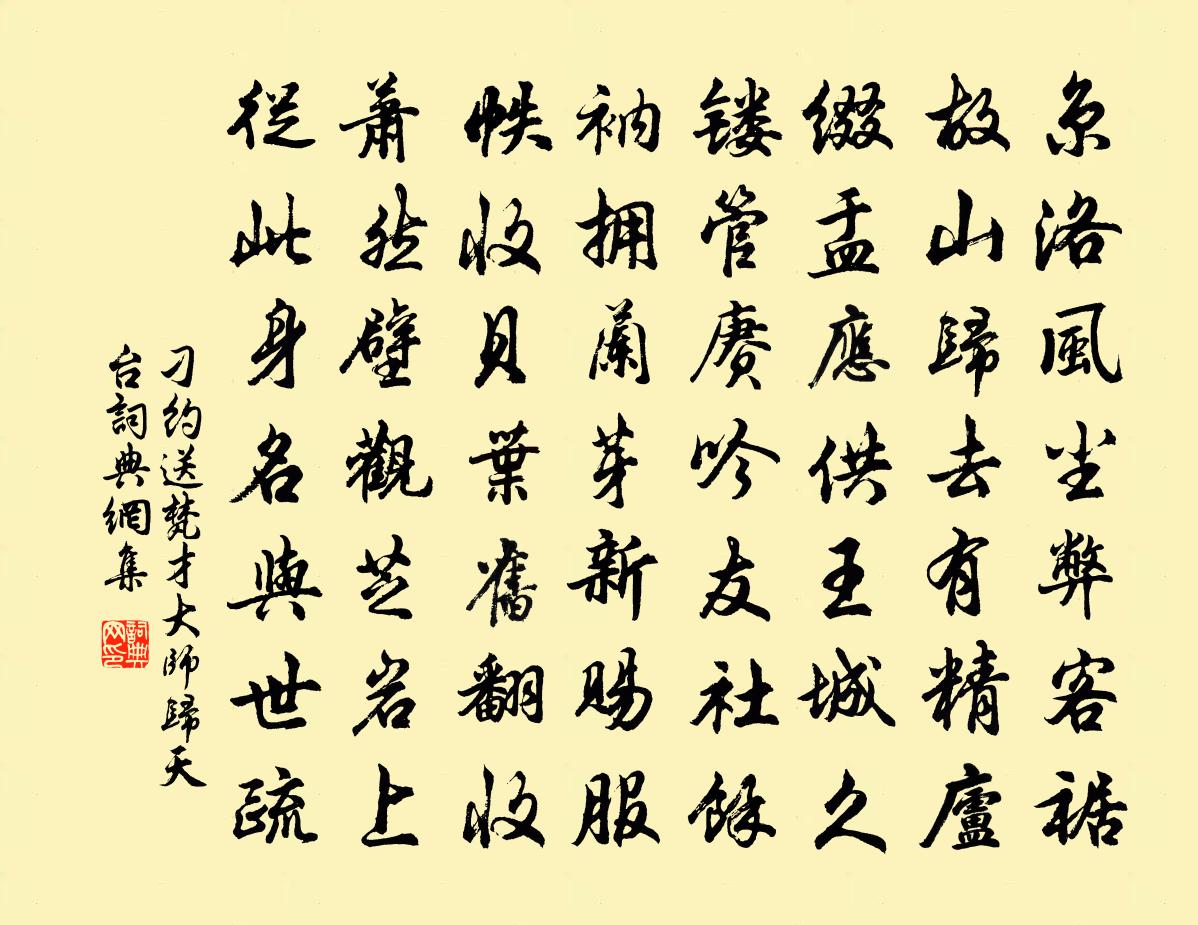 京洛風尘弊客裾
故山歸去有精廬
缀盂應供王城久
镂管赓吟友社餘
衲拥蘭芽新賜服
帙收貝葉舊翻收
萧然壁觀芝岩上
從此身名與世疏
刁約送梵才大師歸天
台詞典網集
詞典网印